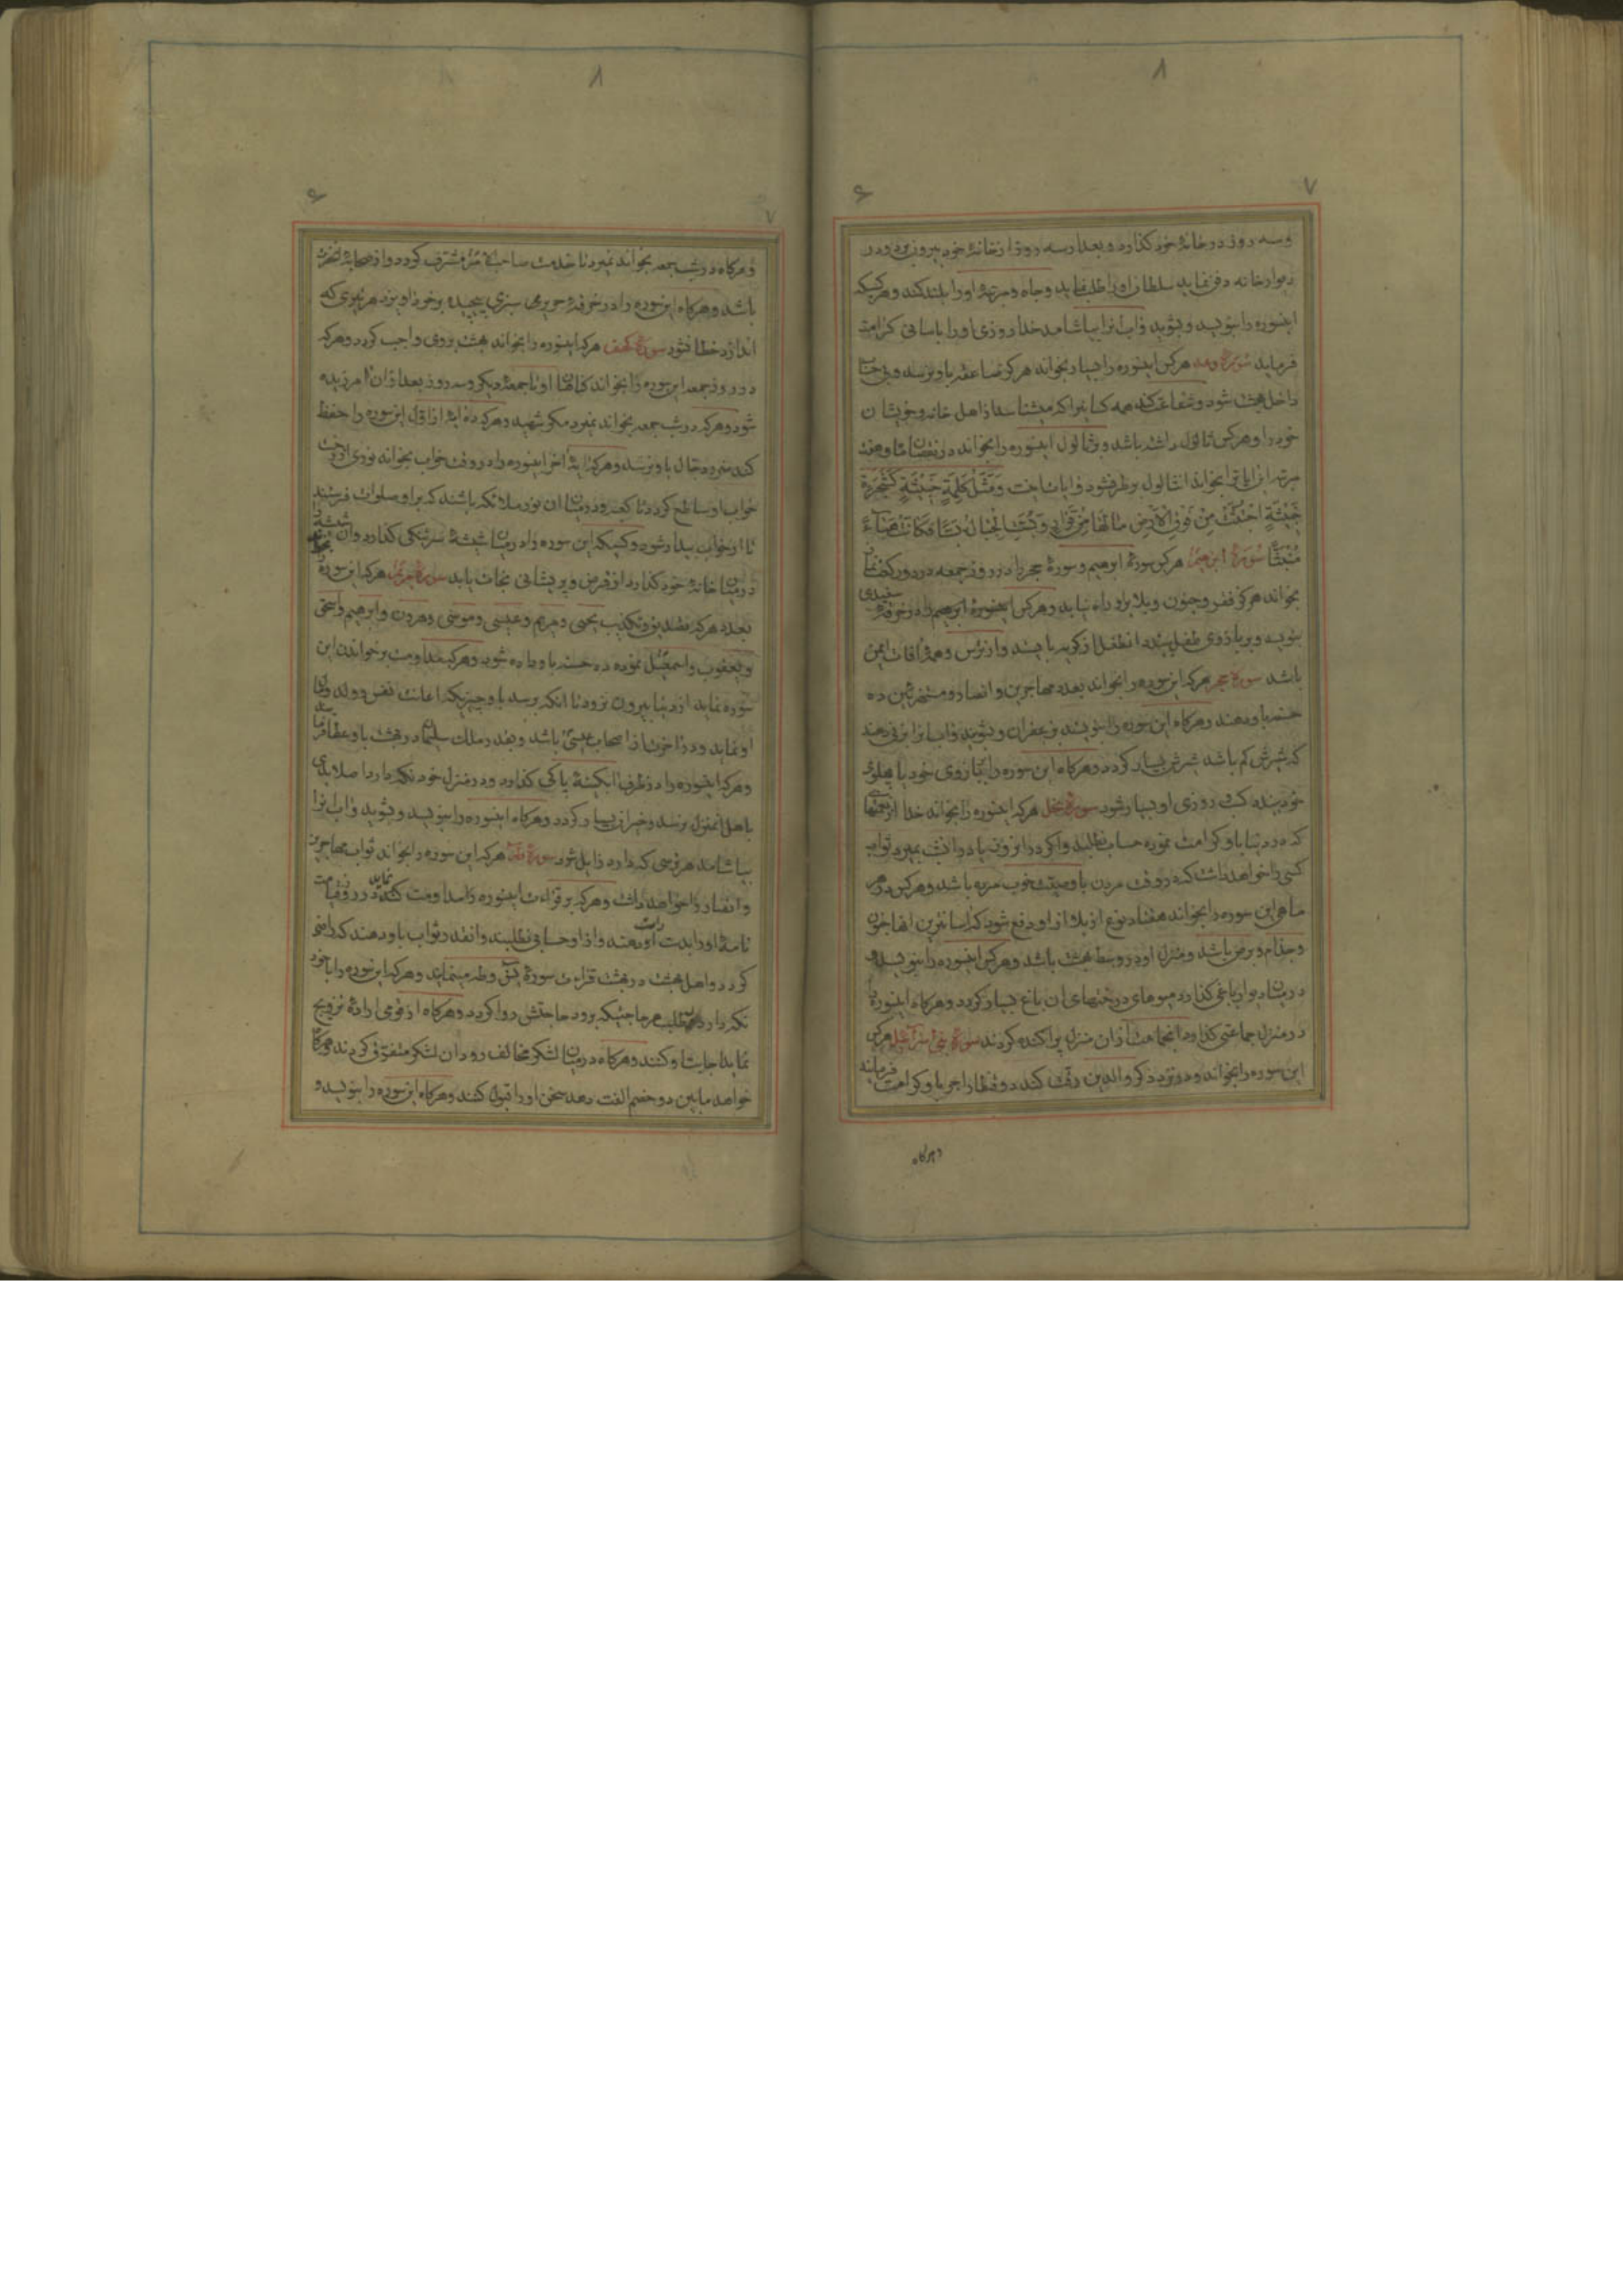 وسه روز در خانهٔ خود گذارد و بعد از سه روز از خانهٔ خود بیرون برد و در
دیوار خانه دفن نماید سلطان او را طلب نماید و جاه و مرتبهٔ او را بلند کند و هر کسیکه
اینسوره را بنویسد و بشوید و آب انرا بیاشامد خدا روزی او را باسانی کرامت
فرماید سورهٔ رعد هرکس اینسوره را بسیار بخواند هرگز صاعقه باو نرسد و بی حساب
داخل بهشت شود و شفاعت کند همه کسانیرا که میشناسد از اهل خانه و خویشان
خود را و هر کس ثالول داشته باشد و بر ثالول اینسوره را بخواند در نقصان ماه و هفت
مرتبه این ایاترا بخواند ان ثالول برطرف شود و ایات اینست وَمَثَلُ کَلِمَةٍ خَبیثَةٍ کَشَجَرَةٍ
خَبیثَةٍ اجْتُثَّتْ مِنْ فَوْقِ الْأَرْضِ مٰا لَهٰا مِنْ قَرٰارٍ وَبُسَّتِ الْجِبٰالُ بَسّٰاً فَکٰانَتْ هَبٰآءً
مُنْبَثّاً سُورَهٔ ابرهیم هرکس سورهٔ ابرهیم و سورهٔ حجر را در روز جمعه در دو رکعت نماز
بخواند هرگز فقر و جنون و بلا براو راه نیابد و هرکس اینسورهٔ ابرهیم را در خرقهٔ سفیدی
بنویسد و بر بازوی طفل بندد انطفل از گریه باز ایستد و از ترس و همهٔ افات ایمن
باشد سورهٔ حجر هرکه این سوره را بخواند بعدد مهاجرین و انصار و مستهزئین ده
حسنه باو دهند و هرگاه این سوره را بنویسند بزعفران و بشویند و اب انرا بزنی دهند
که شیرش کم باشد شیرش بسیار گردد و هرگاه این سوره را ببازوی خود یا پهلوی
خود بندد کسب و روزی او بسیار شود سورهٔ نحل هرکه اینسوره را بخواند خدا از نعمتهائی
که در دنیا باو کرامت نموده حساب نطلبد و اگر در انروز یا در انشب بمیرد ثواب
کسی را خواهد داشت که در وقت مردن با وصیت خوب مرده باشد و هرکس در هر
ماهی این سوره را بخواند هفتاد نوع از بلا از او دفع شود که اسانترین انها جنون
و جذام و برص باشد و منزل او در وسط بهشت باشد و هرکس اینسوره را بنویسد و
در میان دیوار باغی گذارد میوهای درختهای ان باغ بسیار گردد و هرگاه اینسوره را
در منزل جماعتی گذارد انجماعت از ان منزل پراکنده گردند سورهٔ بنی اسرآئیل هرکس
این سوره را بخواند و در نزد ذکر والدین رقت کند دو قنطار اجر باو کرامت فرمایند
وهرگاه
وهرگاه در شب جمعه بخواند نمیرد تا بخدمت صاحب الامر مشرف گردد و از صحابهٔ انحضرت
باشد و هرگاه این سوره را در خرقهٔ حریری سبزی پیچیده بر خود اویزد هر تیری که
اندازد خطا نشود سورهٔ کهف هرکه اینسوره را بخواند بهشت بر وی واجب گردد و هرکه
در روز جمعه این سوره را بخواند گناهان او تا جمعهٔ دیگر و سه روز بعد از ان امرزیده
شود و هرکه در شب جمعه بخواند نمیرد مگر شهید و هرکه ده ایه از اول این سوره را حفظ
کند ضرر دجال باو نرسد و هرکه ایهٔ اخر اینسوره را در وقت خواب بخواند نوری از رخت
خواب او ساطع گردد تا کعبه و در میان ان نور ملائکه باشند که براو صلوات فرستند
تا از خواب بیدار شود و کسیکه این سوره را در میان شیشهٔ سرتنگی گذارد و ان شیشه را
در میان خانهٔ خود گذارد از قرض و پریشانی نجات یابد سورهٔ مریم هرکه این سوره
بعدد هرکه تصدیق و تکذیب یحیی و مریم و عیسی و موسی و هرون و ابرهیم و اسحق
و یعقوب و اسمعیل نموده ده حسنه باو داده شود و هرکه مداومت بر خواندن این
سوره نماید از دنیا بیرون نرود تا انکه برسد باو چیزیکه اعانت نفس و ولد و مال
او نماید و در اخرت از اصحاب عیسی باشد و بقدر ملک سلیمان در بهشت باو عطا فرماید
وهرکه اینسوره را در ظرف ابگینهٔ پاکی گذارد و در منزل خود نگه دارد اصلا بدی
باهل انمنزل نرسد و خیر ان بسیار گردد و هرگاه اینسوره را بنویسد و بشوید و اب انرا
بیاشامد هر ترسی که دارد زایل شود سورهٔ طه هرکه این سوره را بخواند ثواب مهاجرین
و انصار را خواهد داشت و هرکه بر قراءت اینسوره مداومت نماید در روز قیامت
نامهٔ او را بدست راست او دهند و از او حسابی نطلبند و انقدر ثواب باو دهند که راضی
گردد و اهل بهشت در بهشت قراءت سورهٔ یس و طه مینمایند و هرکه این سوره را با خود
نگه دارد و بطلب هر حاجتیکه برود حاجتش روا گردد و هرگاه از قومی ارادهٔ تزویج
نماید اجابت او کنند و هرگاه در میان لشکر مخالف رود ان لشکر متفرق گردند و هرگاه
خواهد ما بین دو خصم الفت دهد سخن او را قبول کنند و هرگاه این سوره را بنویسد و